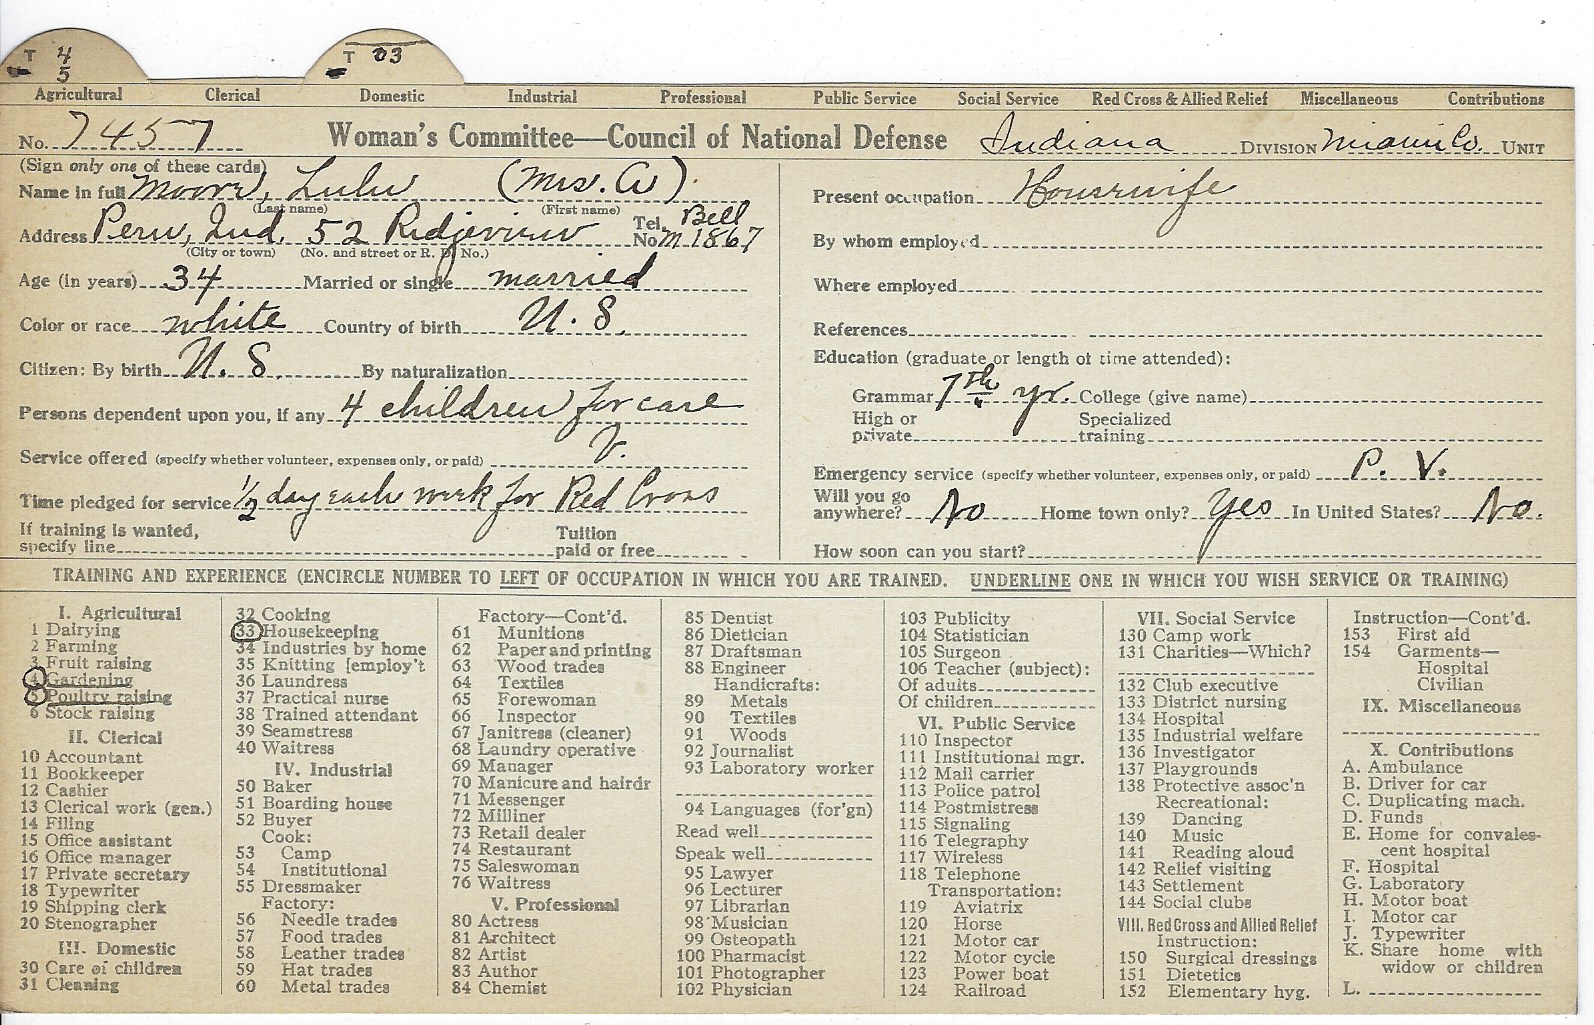 T 4 T 03
5
Agricultural Clerical Domestic Industrial Professional Public Service Social Service Red Cross & Allied Relief Miscellaneous Contributions
No. 7457 Woman's Committee—Council of National Defense Indiana DIVISION Miami Co. UNIT
(Sign only one of these cards)
Name in full Moore, Lulu (Mrs. A)
(Last name) (First name)
Address Peru, Ind. 52 Ridgeview Tel. No. Bell M 1867
(City or town) (No. and street or R. D. No.)
Age (in years) 34 Married or single married
Color or race white Country of birth U. S.
Citizen: By birth U. S. By naturalization
Persons dependent upon you, if any 4 children for care
Service offered (specify whether volunteer, expenses only, or paid) V.
Time pledged for service 1/2 day each week for Red Cross
If training is wanted, Tuition
specify line paid or free
Present occupation Housewife
By whom employed
Where employed
References
Education (graduate or length of time attended):
Grammar 7th yr. College (give name)
High or Specialized
private training
Emergency service (specify whether volunteer, expenses only, or paid) P. V.
Will you go
anywhere? No Home town only? Yes In United States? No.
How soon can you start?
TRAINING AND EXPERIENCE (ENCIRCLE NUMBER TO LEFT OF OCCUPATION IN WHICH YOU ARE TRAINED. UNDERLINE ONE IN WHICH YOU WISH SERVICE OR TRAINING)
I. Agricultural
1 Dairying
2 Farming
3 Fruit raising
4 Gardening
5 Poultry raising
6 Stock raising
II. Clerical
10 Accountant
11 Bookkeeper
12 Cashier
13 Clerical work (gen.)
14 Filing
15 Office assistant
16 Office manager
17 Private secretary
18 Typewriter
19 Shipping clerk
20 Stenographer
III. Domestic
30 Care of children
31 Cleaning
32 Cooking
33 Housekeeping
34 Industries by home
35 Knitting [employ't
36 Laundress
37 Practical nurse
38 Trained attendant
39 Seamstress
40 Waitress
IV. Industrial
50 Baker
51 Boarding house
52 Buyer
Cook:
53 Camp
54 Institutional
55 Dressmaker
Factory:
56 Needle trades
57 Food trades
58 Leather trades
59 Hat trades
60 Metal trades
Factory—Cont'd.
61 Munitions
62 Paper and printing
63 Wood trades
64 Textiles
65 Forewoman
66 Inspector
67 Janitress (cleaner)
68 Laundry operative
69 Manager
70 Manicure and hairdr
71 Messenger
72 Milliner
73 Retail dealer
74 Restaurant
75 Saleswoman
76 Waitress
V. Professional
80 Actress
81 Architect
82 Artist
83 Author
84 Chemist
85 Dentist
86 Dietician
87 Draftsman
88 Engineer
Handicrafts:
89 Metals
90 Textiles
91 Woods
92 Journalist
93 Laboratory worker
94 Languages (for'gn)
Read well
Speak well
95 Lawyer
96 Lecturer
97 Librarian
98 Musician
99 Osteopath
100 Pharmacist
101 Photographer
102 Physician
103 Publicity
104 Statistician
105 Surgeon
106 Teacher (subject):
Of adults
Of children
VI. Public Service
110 Inspector
111 Institutional mgr.
112 Mail carrier
113 Police patrol
114 Postmistress
115 Signaling
116 Telegraphy
117 Wireless
118 Telephone
Transportation:
119 Aviatrix
120 Horse
121 Motor car
122 Motor cycle
123 Power boat
124 Railroad
VII. Social Service
130 Camp work
131 Charities—Which?
132 Club executive
133 District nursing
134 Hospital
135 Industrial welfare
136 Investigator
137 Playgrounds
138 Protective assoc'n
Recreational:
139 Dancing
140 Music
141 Reading aloud
142 Relief visiting
143 Settlement
144 Social clubs
VIII. Red Cross and Allied Relief
Instruction:
150 Surgical dressings
151 Dietetics
152 Elementary hyg.
Instruction—Cont'd.
153 First aid
154 Garments—
Hospital
Civilian
IX. Miscellaneous
X. Contributions
A. Ambulance
B. Driver for car
C. Duplicating mach.
D. Funds
E. Home for convales-
cent hospital
F. Hospital
G. Laboratory
H. Motor boat
I. Motor car
J. Typewriter
K. Share home with
widow or children
L.